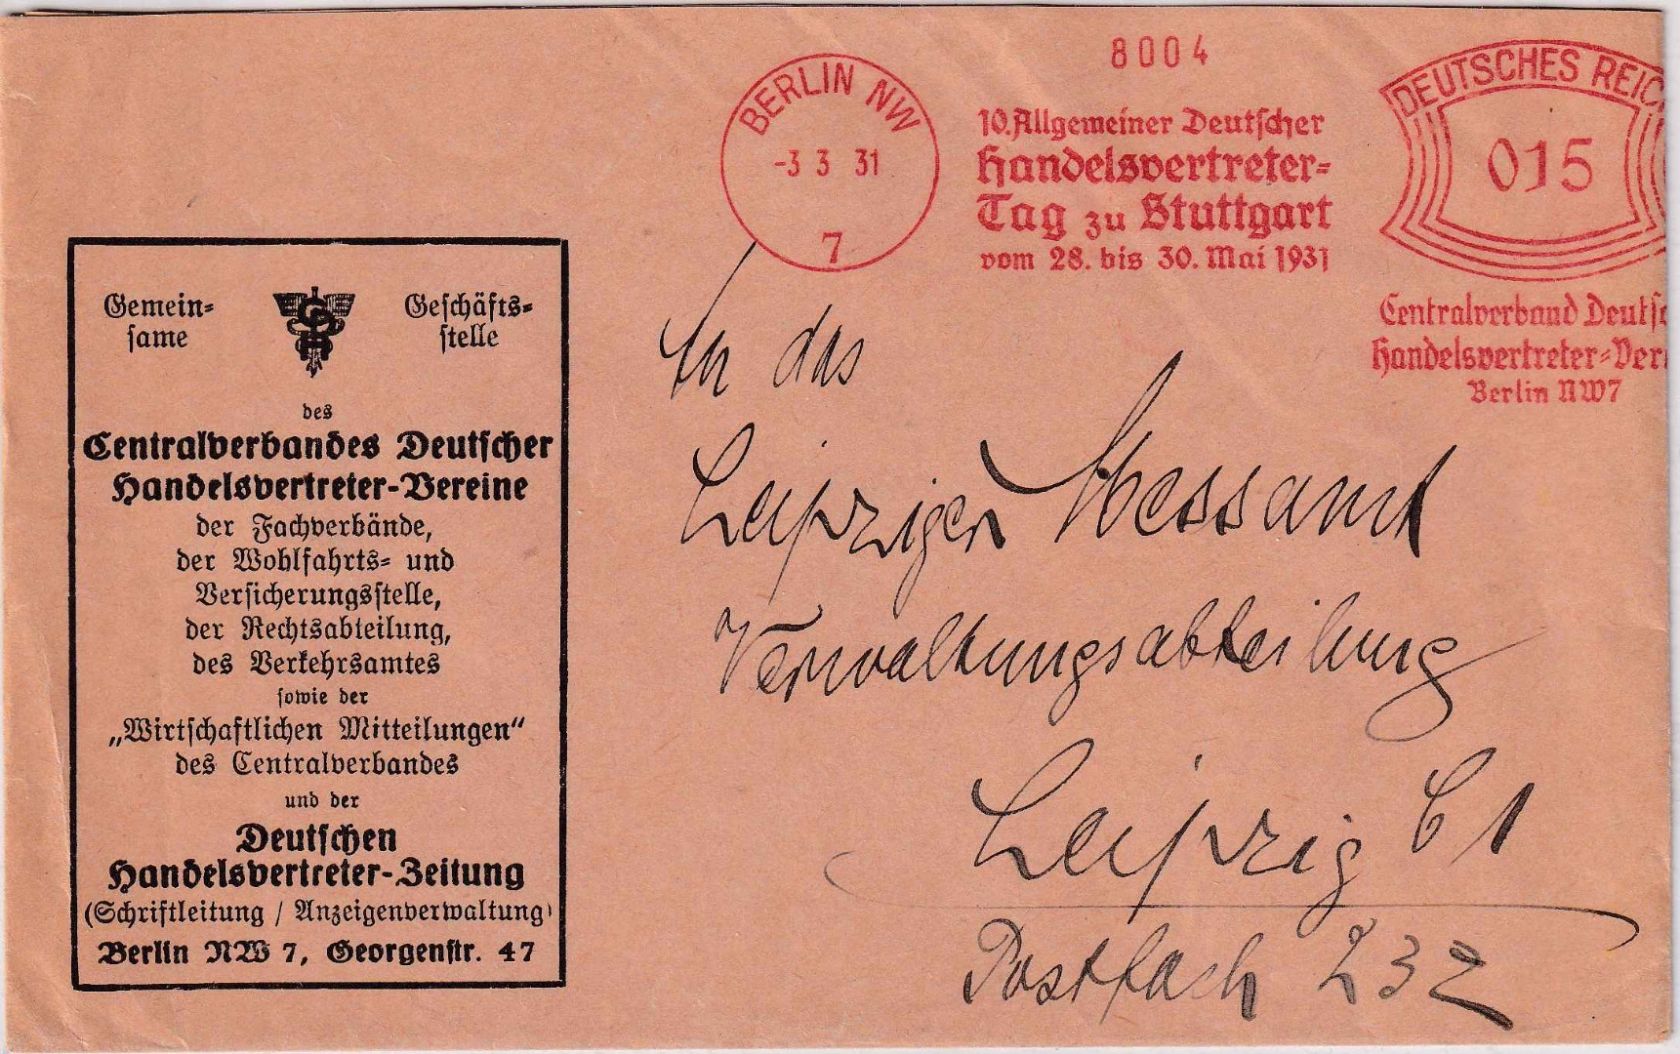 8004
BERLIN NW
-3 3 31
7
10. Allgemeiner Deutscher
Handelsvertreter-
Tag zu Stuttgart
vom 28. bis 30. Mai 1931
DEUTSCHES REICH
015
Centralverband Deutsc
Handelsvertreter-Ver
Berlin NW7
Gemein-
same
Geschäfts-
stelle
des
Centralverbandes Deutscher
Handelsvertreter-Vereine
der Fachverbände,
der Wohlfahrts- und
Versicherungsstelle,
der Rechtsabteilung,
des Verkehrsamtes
sowie der
„Wirtschaftlichen Mitteilungen“
des Centralverbandes
und der
Deutschen
Handelsvertreter-Zeitung
(Schriftleitung / Anzeigenverwaltung)
Berlin NW 7, Georgenstr. 47
An das
Leipziger Messamt
Verwaltungsabteilung
Leipzig C 1
Postfach 232